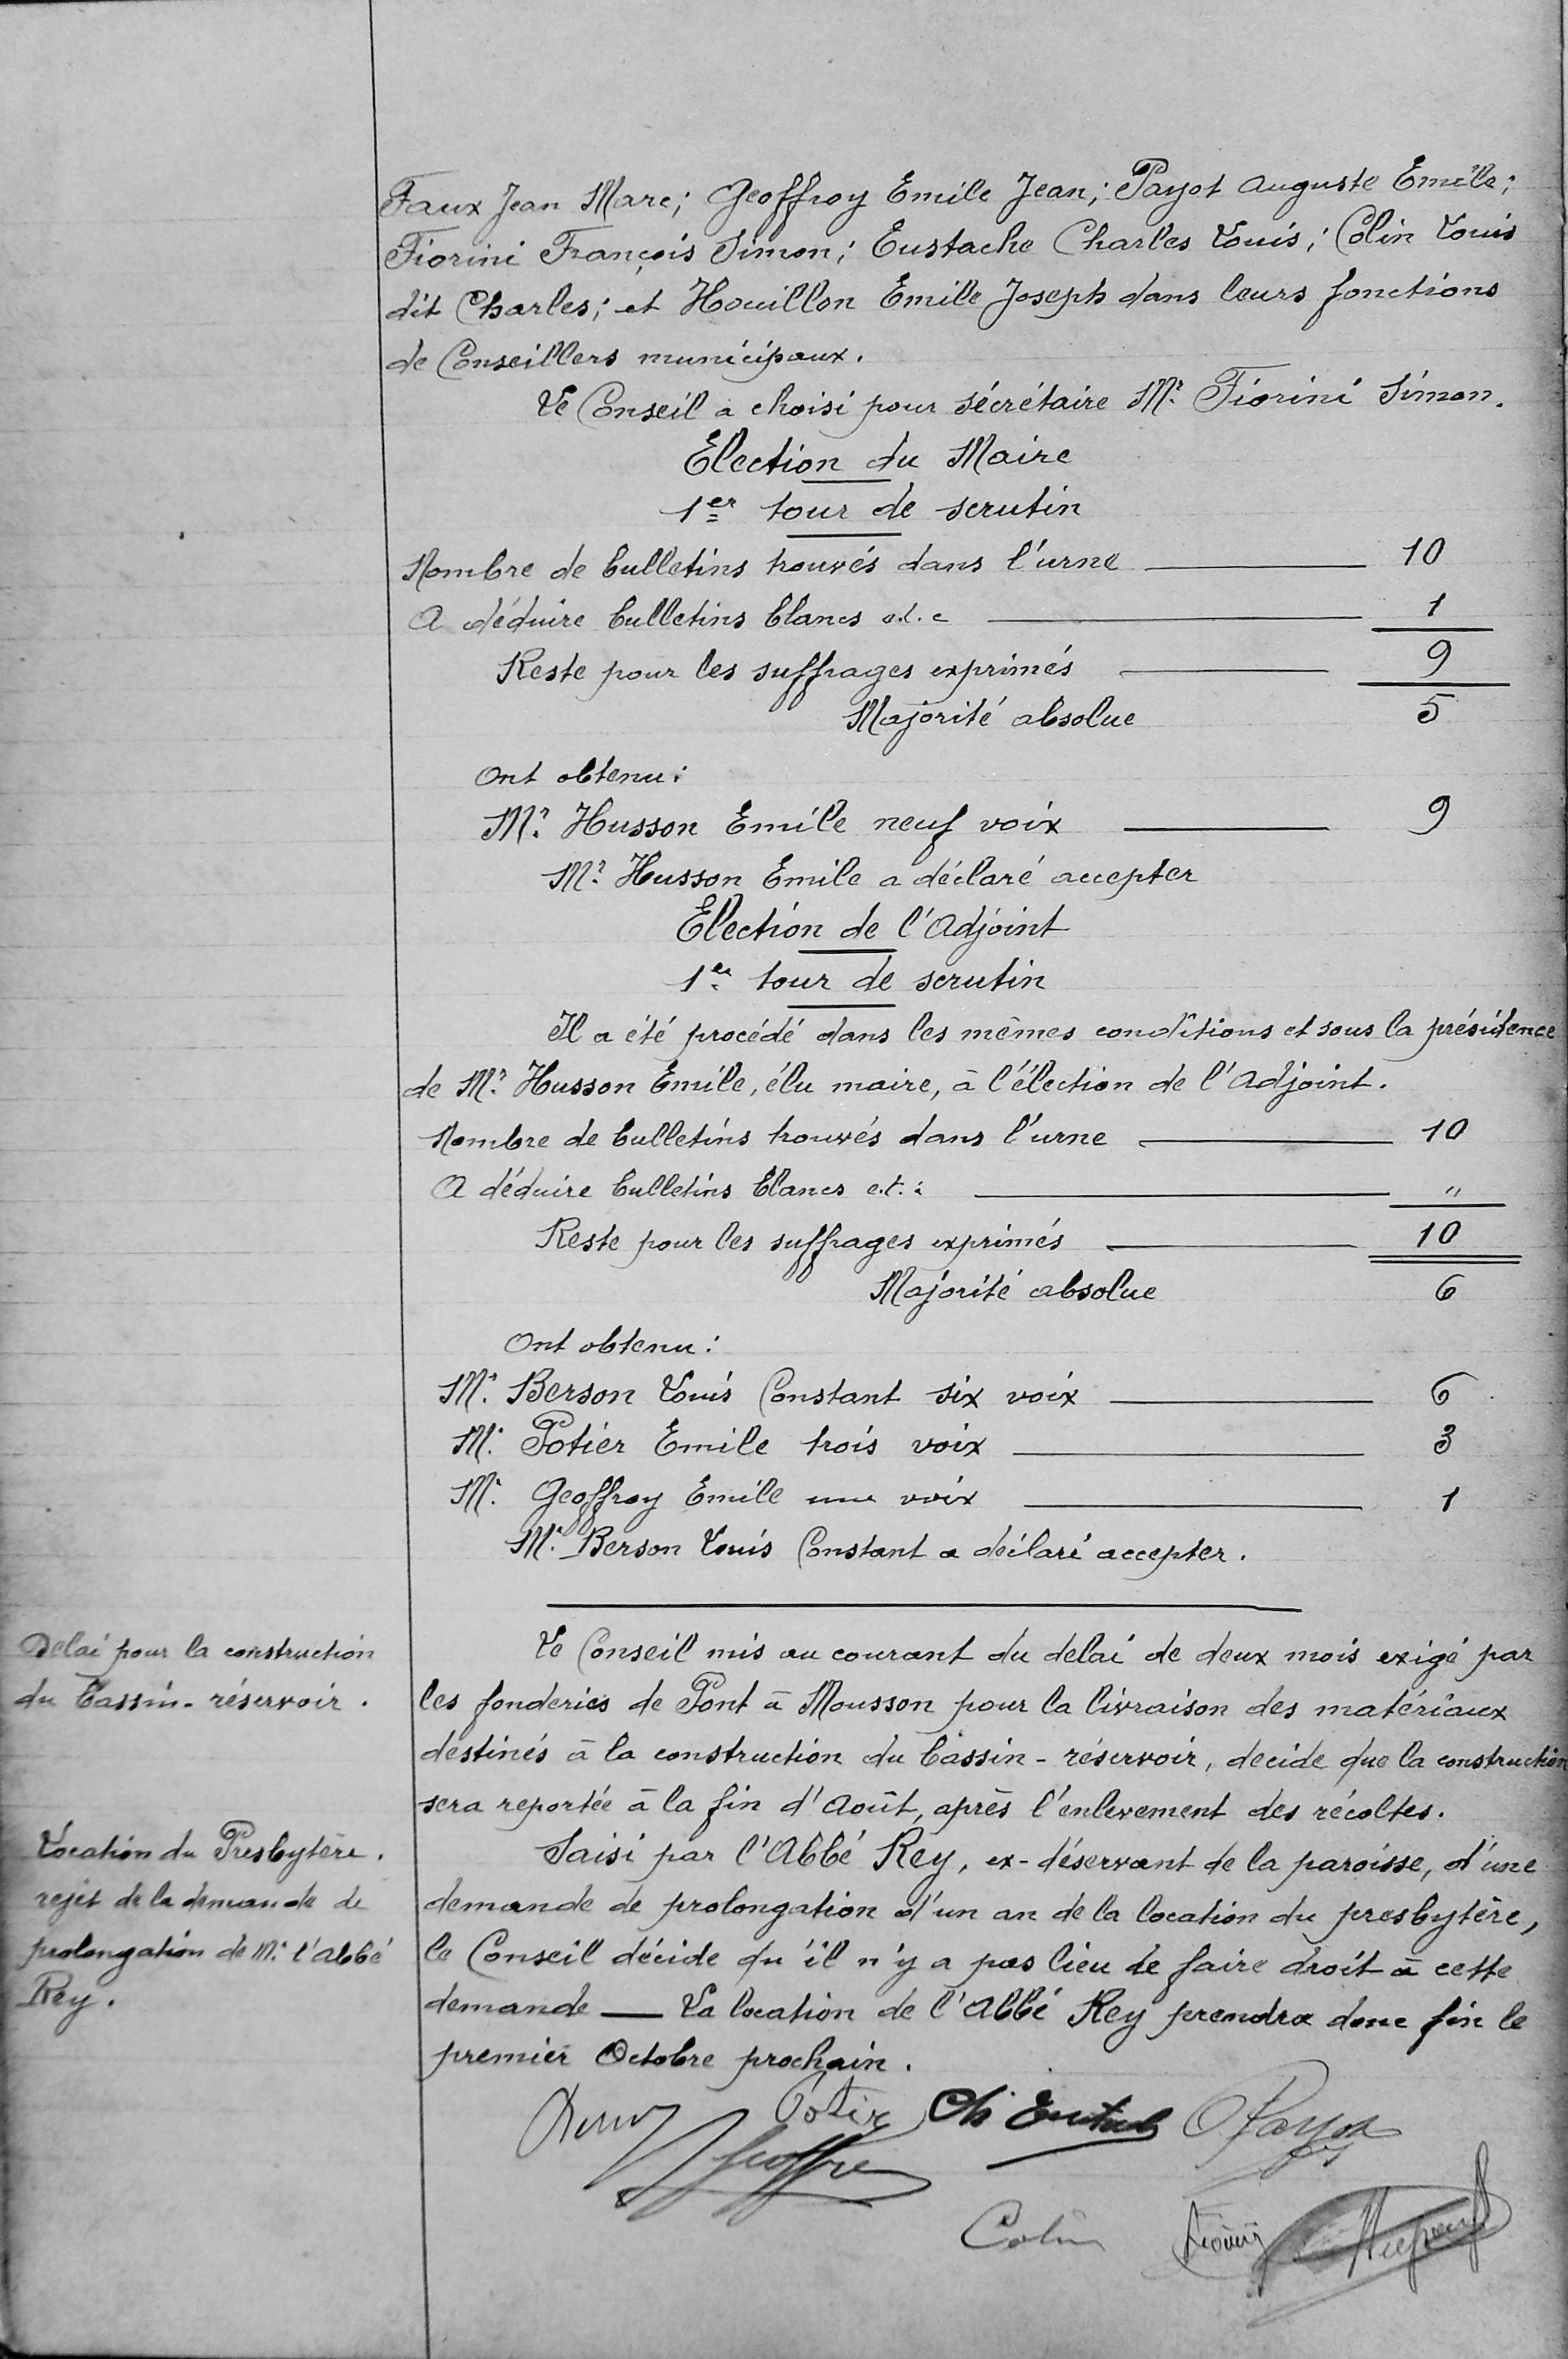 Faux Jean Marc; Geoffroy Emile Jean; Payot Auguste Emile;
Fiorini François Simon; Eustache Charles Louis; Colin Louis
dit Charles; et Houillon Emile Joseph dans leurs fonctions
de Conseillers municipaux.
Le Conseil a choisi pour sécrétaire Mr. Fiorini Simon.
Election du Maire
1er tour de scrutin
Nombre de bulletins trouvés dans l'urne — 10
A déduire bulletins blancs e.t.c — 1
Reste pour les suffrages exprimés — 9
Majorité absolue 5
Ont obtenu:
Mr. Husson Emile neuf voix — 9
Mr. Husson Emile a déclaré accepter
Election de l'Adjoint
1er tour de scrutin
Il a été procédé dans les mêmes conditions et sous la présidence
de Mr. Husson Emile, élu maire, à l'élection de l'Adjoint.
Nombre de bulletins trouvés dans l'urne — 10
A déduire bulletins blancs e.t.c — "
Reste pour les suffrages exprimés — 10
Majorité absolue 6
Ont obtenu:
Mr. Berson Louis Constant six voix — 6
Mr. Potier Emile trois voix — 3
Mr. Geoffroy Emile une voix — 1
Mr. Berson Louis Constant a déclaré accepter.
Delai pour la construction
du bassin-réservoir.
Le Conseil mis au courant du delai de deux mois exigé par
les fonderies de Pont à Mousson pour la livraison des matériaux
destinés à la construction du bassin-réservoir, decide que la construction
sera reportée à la fin d'Août, après l'enlevement des récoltes.
Location du Presbytère.
rejet de la demande de
prolongation de Mr. l'abbé
Rey.
Saisi par l'Abbé Rey, ex-déservant de la paroisse, d'une
demande de prolongation d'un an de la location du presbytère,
le Conseil décide qu'il n'y a pas lieu de faire droit à cette
demande — La location de l'Abbé Rey prendra donc fin le
premier Octobre prochain.
Potier Ch Eustache Payot
Geoffroy
Colin Fiorini